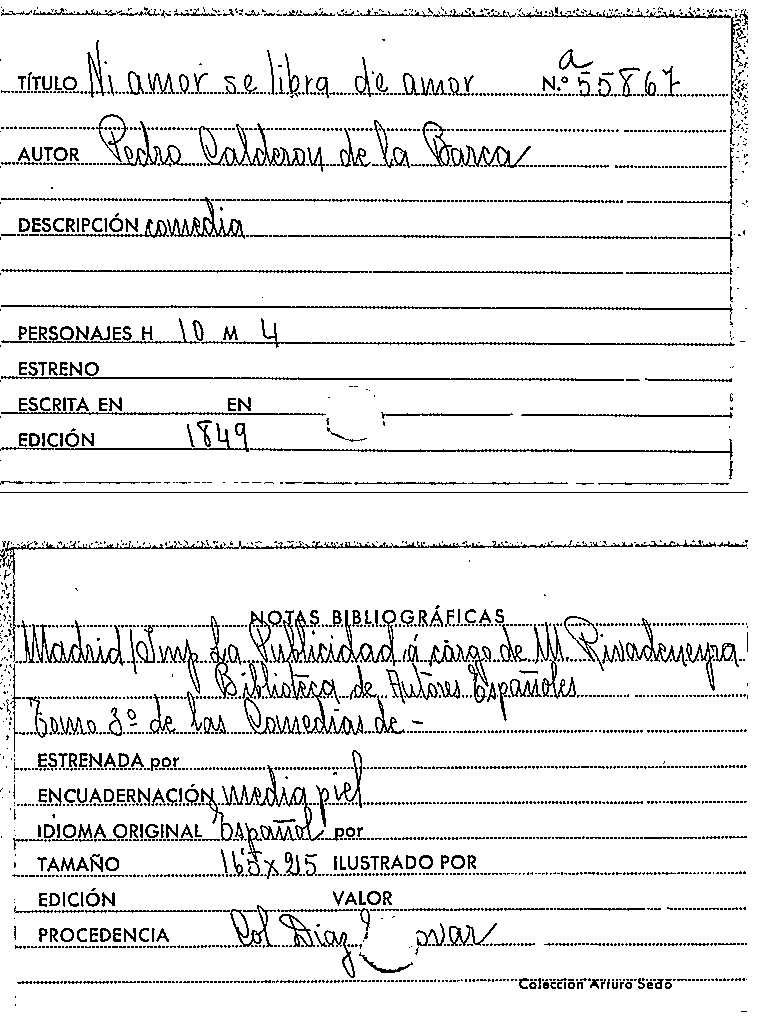 a
TÍTULO Ni amor se libra de amor N.º 55867
AUTOR Pedro Calderon de la Barca
DESCRIPCIÓN comedia
PERSONAJES H 10 M 4
ESTRENO
ESCRITA EN EN
EDICIÓN 1849
NOTAS BIBLIOGRÁFICAS
Madrid/Imp La Publicidad á cargo de M. Rivadeneyra
Biblioteca de Autores Españoles
Tomo 3º de las Comedias de -
ESTRENADA por
ENCUADERNACIÓN media piel
IDIOMA ORIGINAL Español por
TAMAÑO 165x215 ILUSTRADO POR
EDICIÓN VALOR
PROCEDENCIA Col Diaz
Colección Arturo Sedó